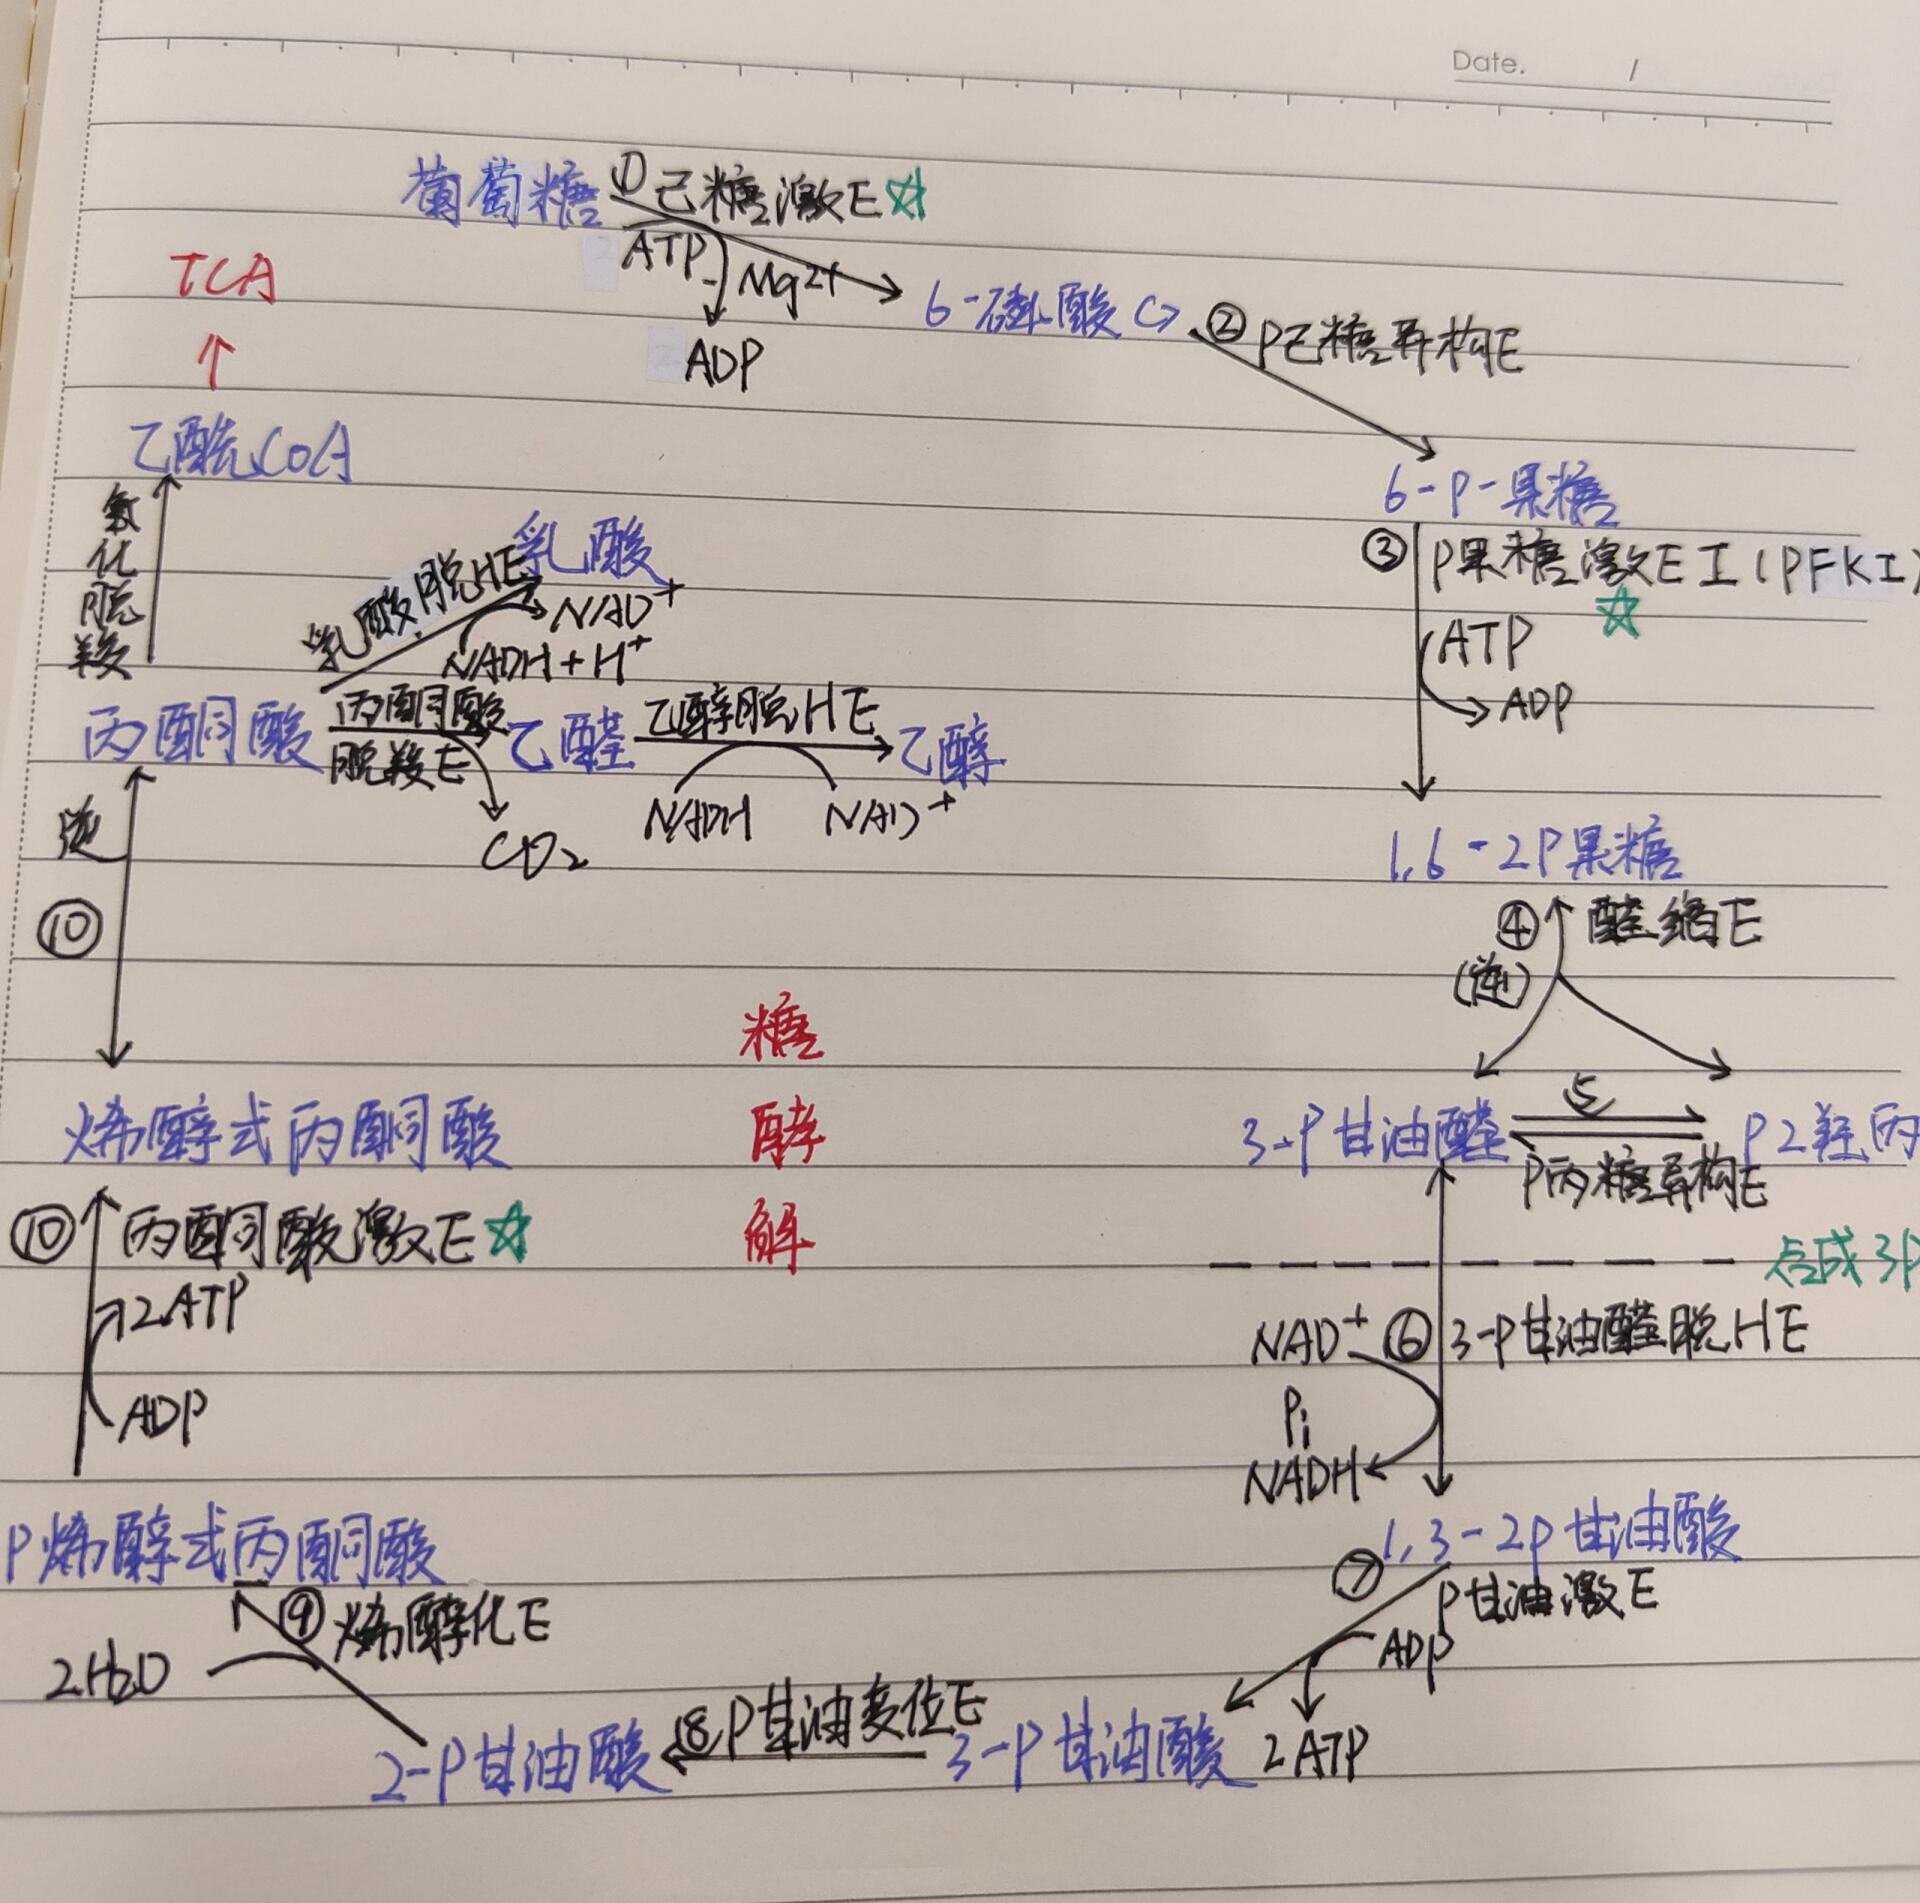 Date. /
葡萄糖 ① 己糖激E ☆
ATP Mg2+
ADP
6-磷酸G
② P己糖异构E
TCA
↑
乙酰COA
氧化脱羧
6-P-果糖
③ P果糖激E I (PFK I)
☆
ATP
ADP
乳酸脱HE 乳酸
NAD+
NADH+H+
丙酮酸 丙酮酸脱羧E 乙醛 乙醇脱HE 乙醇
CO2
NADH NAD+
逆
⑩
1,6-2P果糖
④ 醛缩E
(逆)
3-P甘油醛 5 P2羟丙
P丙糖异构E
糖酵解
烯醇式丙酮酸
⑩ 丙酮酸激E ☆
2ATP
ADP
NAD+ ⑥ 3-P甘油醛脱HE
Pi
NADH
P烯醇式丙酮酸
1,3-2P甘油酸
⑦ P甘油激E
ADP
2ATP
⑨ 烯醇化E
2H2O
2-P甘油酸 ⑧ P甘油变位E 3-P甘油酸